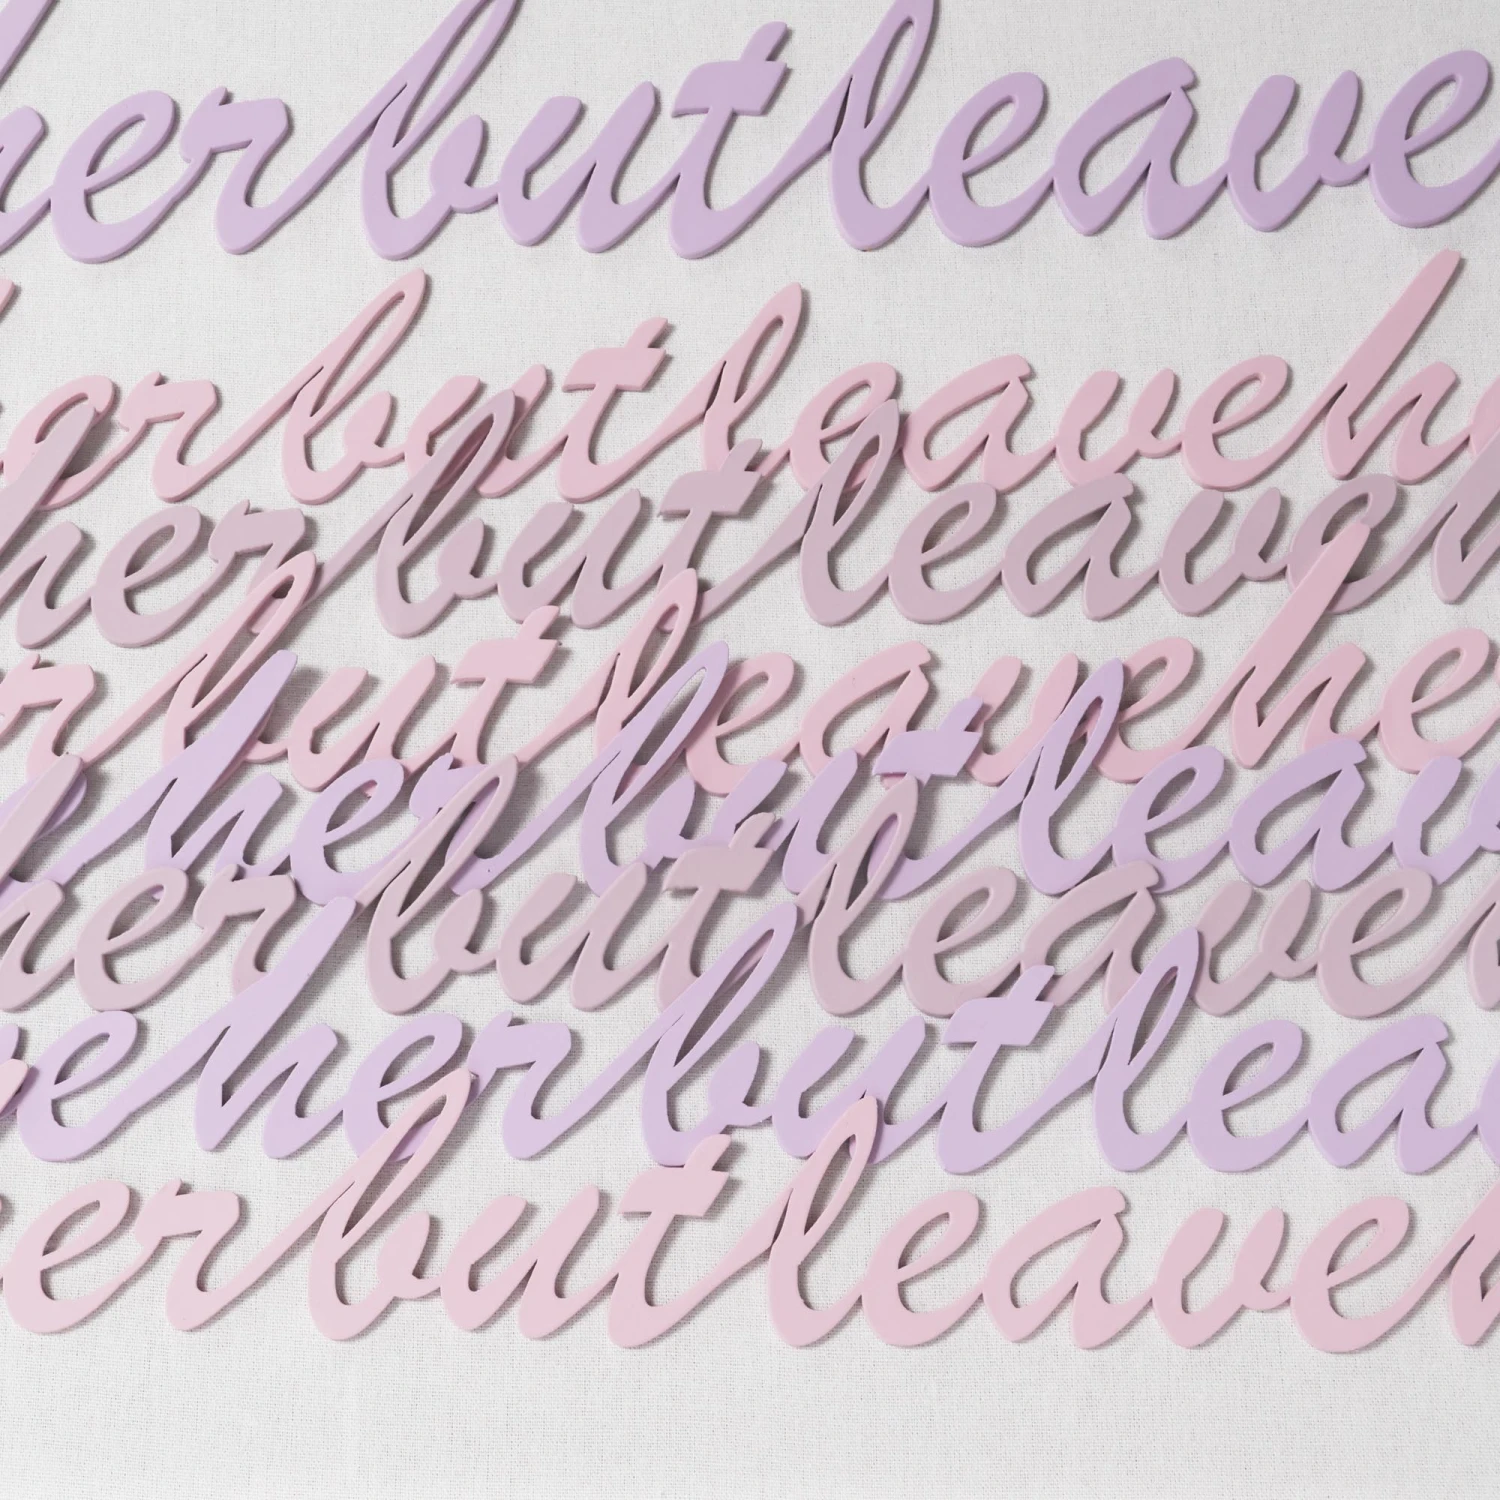 herbutleave
erbutleaveh
herbutleaveh
rbutleavehe
herbutleav
herbutleave
eherbutlea
erbutleaveh